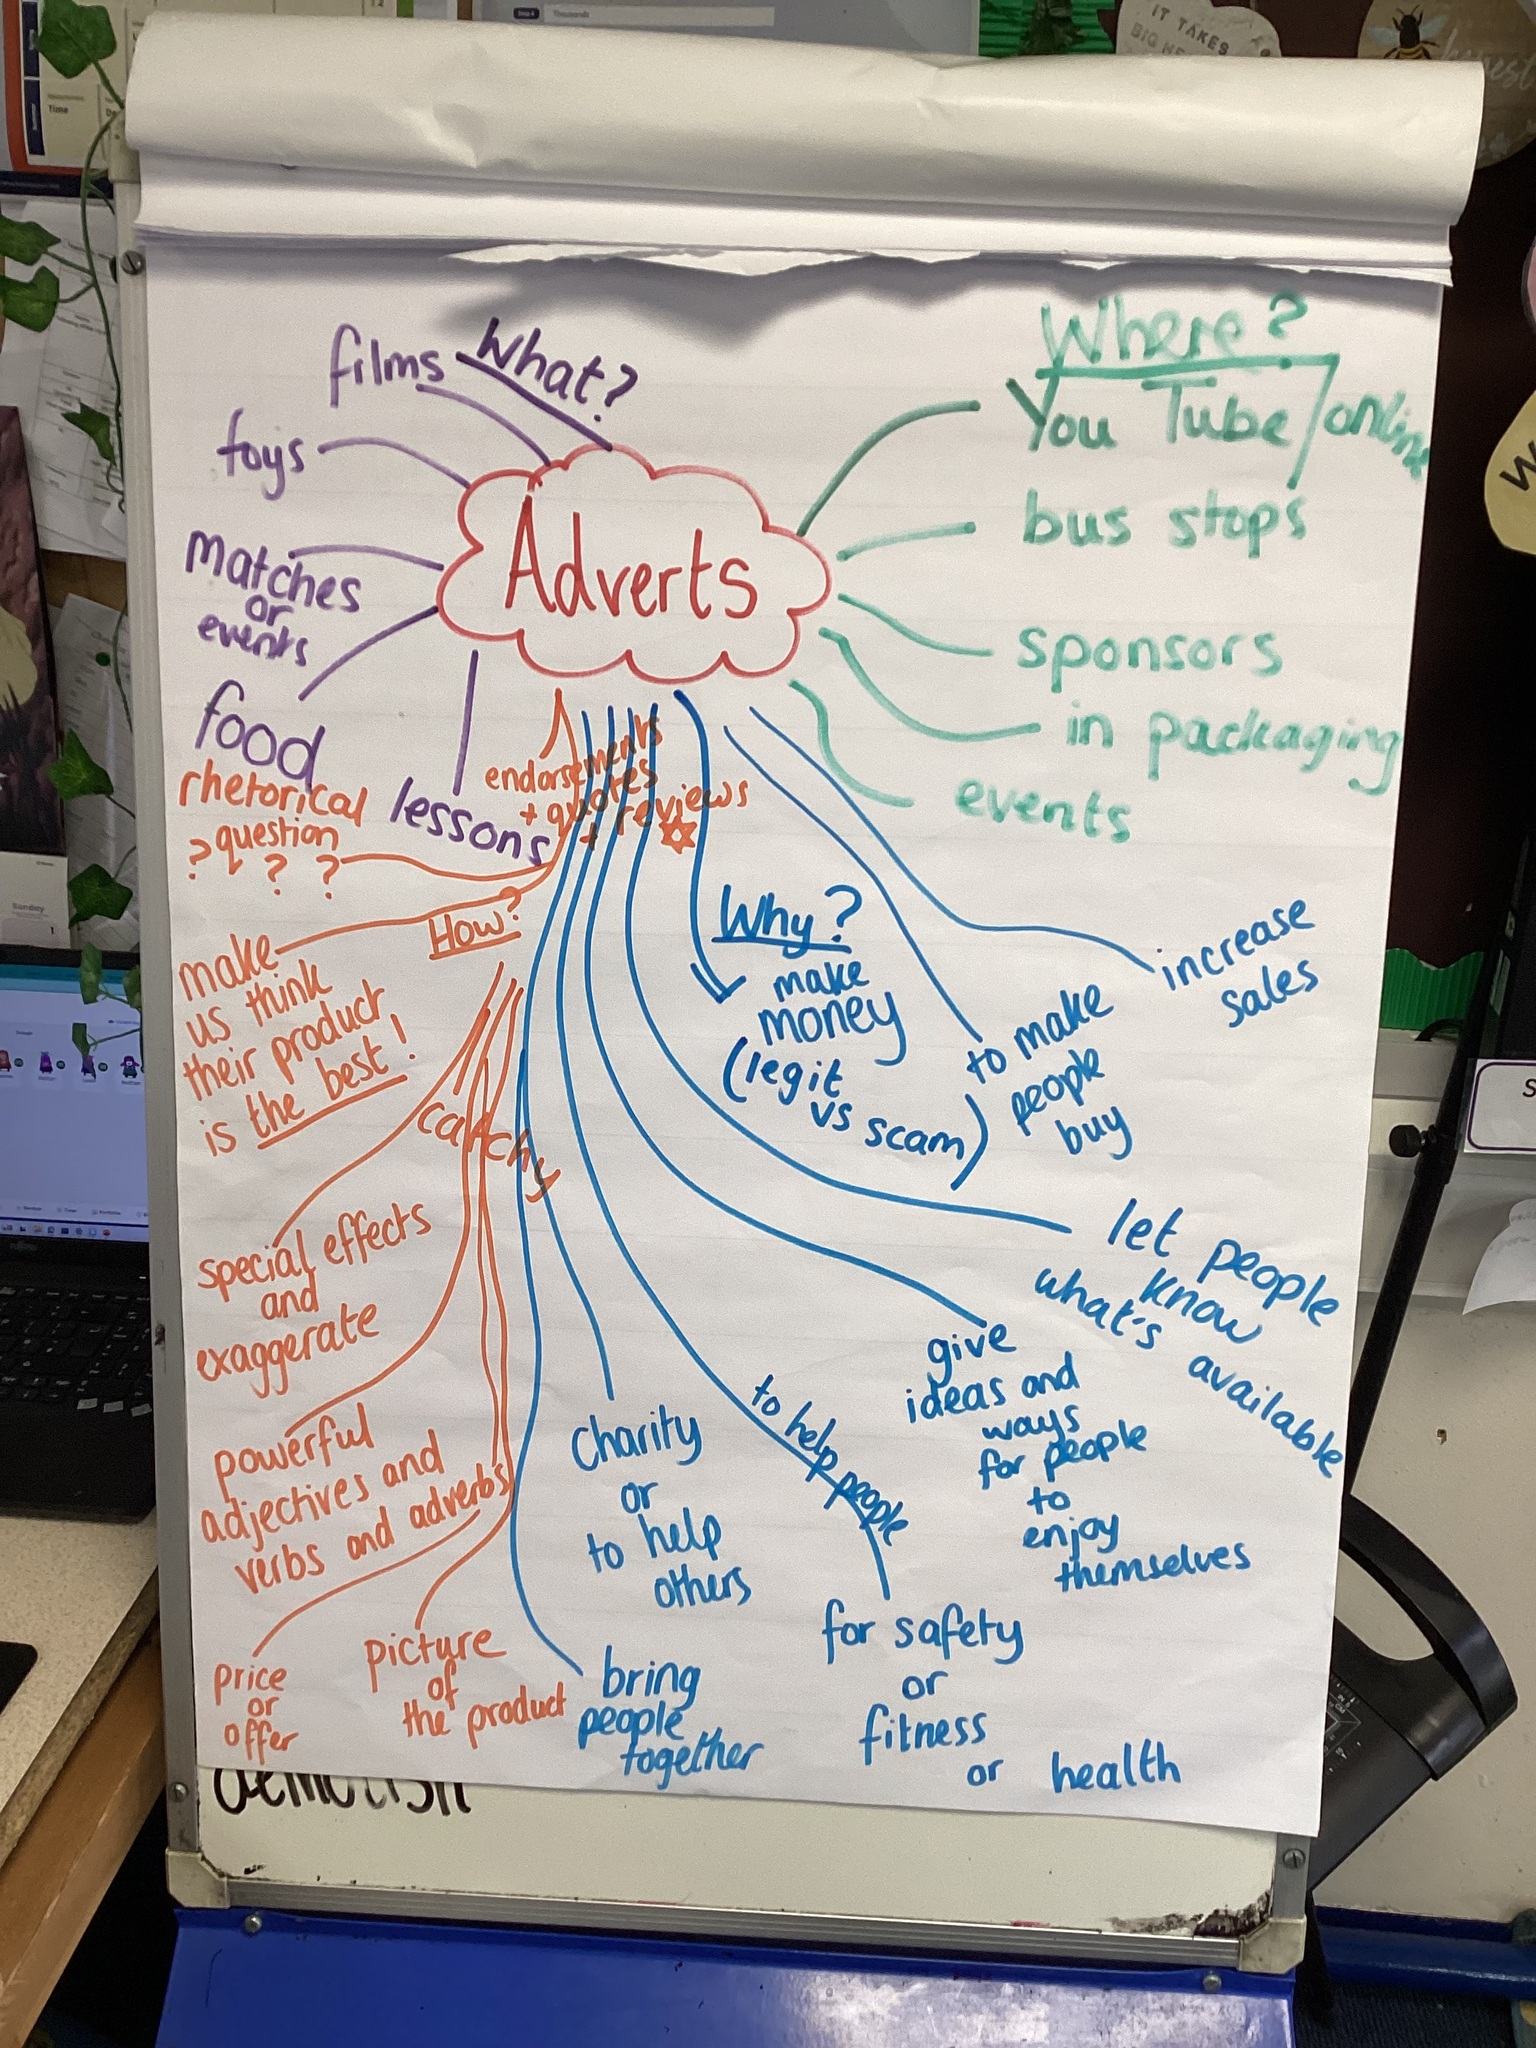 Thousands
IT TAKES
BIG HE
Time
What?
films
toys
matches
or
events
food
lessons
Adverts
Where?
You Tube / online
bus stops
sponsors
in packaging
events
endorsements
+ quotes
+ reviews
rhetorical
question
? ? ?
How?
make
us think
their product
is the best!
catchy
special effects
and
exaggerate
powerful
adjectives and
verbs and adverbs
price
or
offer
picture
of
the product
Why?
make
money
(legit
vs scam)
increase
sales
to make
people
buy
let people
know
what's available
give
ideas and
ways
for people
to
enjoy
themselves
to help people
for safety
or
fitness
or health
Charity
or
to help
others
bring
people
together
Sunday
1